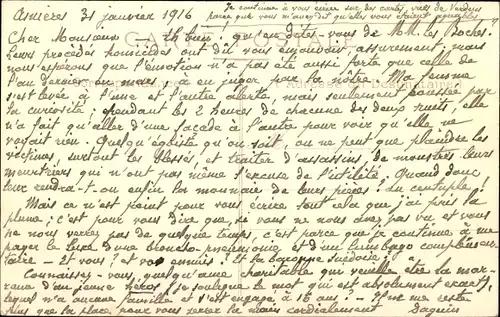 Asnières 31 janvier 1916
Je continue à vous écrire sur des cartes, vues de Verdun
parce que vous m'avez dit qu'elles vous étaient agréables
Cher Monsieur - Eh bien! qu'en dites-vous de M.M. les Boches.
Leurs procédés homicides ont dû vous émouvoir, assurément, mais
nous espérons que l'émotion n'a pas été aussi forte que celle de
l'an dernier en mars, à en juger par la nôtre. Ma femme
s'est levée à l'une et l'autre alerte, mais seulement hantée par
la curiosité; pendant les 2 heures de chacune des deux nuits, elle
n'a fait qu'aller d'une façade à l'autre pour voir qu'elle ne
voyait rien. Quelqu'égoïste qu'on soit, on ne peut que plaindre les
victimes, surtout les blessés, et traiter d'assassins, de monstres leurs
meurtriers qui n'ont pas même l'excuse de l'utilité. Quand donc
leur rendra-t-on enfin la monnaie de leurs pièces! au centuple!
Mais ce n'est point pour vous écrire tout cela que j'ai pris la
plume; c'est pour vous dire que, si vous ne nous avez pas vu et vous
ne nous verrez pas de quelque temps, c'est parce que je continue à me
payer le luxe d'une broncho-pneumonie et d'un lumbago complémen-
taire - Et vous; et vos ennuis! Et la baronne suédoise;
Connaissez-vous, quelqu'âme charitable qui veuille être la mar-
raine d'un jeune héros (je souligne le mot qui est absolument exact)
lequel n'a aucune famille et s'est engagé à 16 ans! - Il ne me reste
plus que la place pour vous serrer la main cordialement Daguin